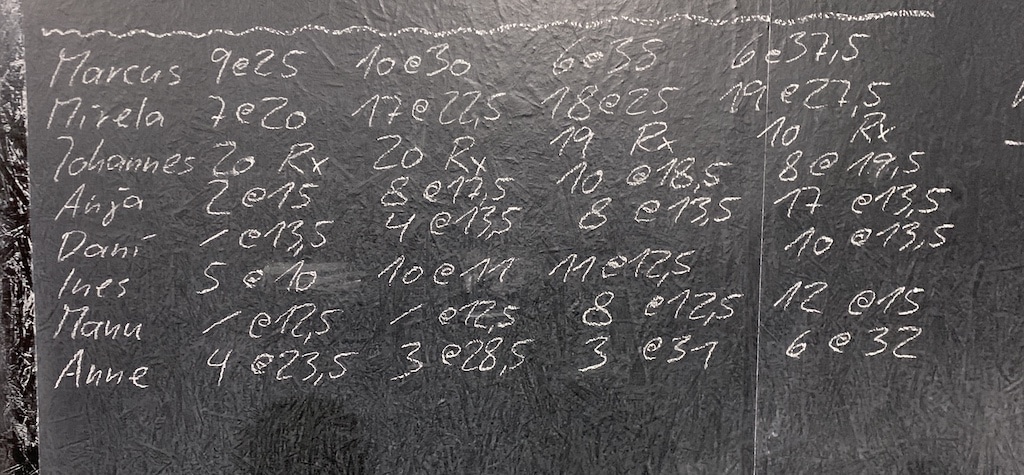 Marcus 9@25 10@30 6@35 6@37,5
Mirela 7@20 17@22,5 18@25 19@27,5
Johannes 20 Rx 20 Rx 19 Rx 10 Rx
Anja 2@15 8@17,5 10 @18,5 8@19,5
Dani 1@13,5 4@13,5 8 @13,5 17 @13,5
Ines 5 @10 10@11 11@12,5 10 @13,5
Manu 1 @12,5 1 @12,5 8 @12,5 12 @15
Anne 4 @23,5 3 @28,5 3 @31 6 @32